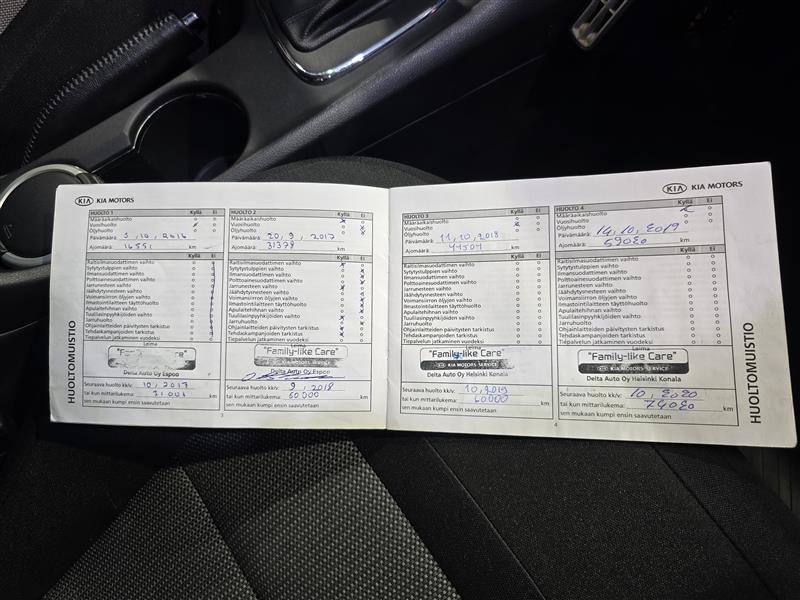 KIA KIA MOTORS
HUOLTO 1 Kyllä Ei
Määräaikaishuolto
Vuosihuolto
Öljyhuolto
Päivämäärä:
Ajomäärä: 16551 km
Kyllä Ei
Raitisilmasuodattimen vaihto
Sytytystulppien vaihto
Ilmansuodattimen vaihto
Polttoainesuodattimen vaihto
Jarrunesteen vaihto
Jäähdytysnesteen vaihto
Voimansiirron öljyjen vaihto
Ilmastointilaitteen täyttöhuolto
Apulaitehihnan vaihto
Tuulilasinpyyhkijöiden vaihto
Jarruhuolto
Ohjainlaitteiden päivitysten tarkistus
Tehdaskampanjoiden tarkistus
Tiepalvelun jatkaminen vuodeksi
Leima
"Family-like Care"
Delta Auto Oy Espoo
Seuraava huolto kk/v: 10, 2017
tai kun mittarilukema: 31001 km
sen mukaan kumpi ensin saavutetaan
HUOLTO 2 Kyllä Ei
Määräaikaishuolto x
Vuosihuolto
Öljyhuolto
Päivämäärä: 20, 9, 2017
Ajomäärä: 31379 km
Kyllä Ei
Raitisilmasuodattimen vaihto
Sytytystulppien vaihto
Ilmansuodattimen vaihto
Polttoainesuodattimen vaihto
Jarrunesteen vaihto
Jäähdytysnesteen vaihto
Voimansiirron öljyjen vaihto
Ilmastointilaitteen täyttöhuolto
Apulaitehihnan vaihto
Tuulilasinpyyhkijöiden vaihto
Jarruhuolto
Ohjainlaitteiden päivitysten tarkistus
Tehdaskampanjoiden tarkistus
Tiepalvelun jatkaminen vuodeksi
Leima
"Family-like Care"
KIA MOTORS SERVICE
Delta Auto Oy Espoo
Seuraava huolto kk/v: 9, 2018
tai kun mittarilukema: 60000 km
sen mukaan kumpi ensin saavutetaan
HUOLTOMUISTIO
3
KIA KIA MOTORS
HUOLTO 3 Kyllä Ei
Määräaikaishuolto
Vuosihuolto
Öljyhuolto
Päivämäärä: 11, 10, 2018
Ajomäärä: 44504 km
Kyllä Ei
Raitisilmasuodattimen vaihto
Sytytystulppien vaihto
Ilmansuodattimen vaihto
Polttoainesuodattimen vaihto
Jarrunesteen vaihto
Jäähdytysnesteen vaihto
Voimansiirron öljyjen vaihto
Ilmastointilaitteen täyttöhuolto
Apulaitehihnan vaihto
Tuulilasinpyyhkijöiden vaihto
Jarruhuolto
Ohjainlaitteiden päivitysten tarkistus
Tehdaskampanjoiden tarkistus
Tiepalvelun jatkaminen vuodeksi
Leima
"Family-like Care"
KIA MOTORS SERVICE
Delta Auto Oy Helsinki Konala
Seuraava huolto kk/v: 10, 2019
tai kun mittarilukema: 60000 km
sen mukaan kumpi ensin saavutetaan
HUOLTO 4 Kyllä Ei
Määräaikaishuolto
Vuosihuolto
Öljyhuolto
Päivämäärä: 14, 10, 2019
Ajomäärä: 59020 km
Kyllä Ei
Raitisilmasuodattimen vaihto
Sytytystulppien vaihto
Ilmansuodattimen vaihto
Polttoainesuodattimen vaihto
Jarrunesteen vaihto
Jäähdytysnesteen vaihto
Voimansiirron öljyjen vaihto
Ilmastointilaitteen täyttöhuolto
Apulaitehihnan vaihto
Tuulilasinpyyhkijöiden vaihto
Jarruhuolto
Ohjainlaitteiden päivitysten tarkistus
Tehdaskampanjoiden tarkistus
Tiepalvelun jatkaminen vuodeksi
Leima
"Family-like Care"
KIA MOTORS SERVICE
Delta Auto Oy Helsinki Konala
Seuraava huolto kk/v: 10, 2020
tai kun mittarilukema: 74020 km
sen mukaan kumpi ensin saavutetaan
HUOLTOMUISTIO
4